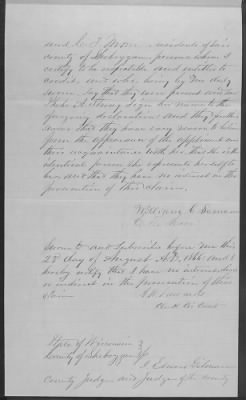 and C. F. Moore residents of the
county of Sheboygan persons whom I
certify to be reputable and entitled to
credit and who being by me duly
sworn say that they were present and saw
sign his name to the
foregoing declaration and they further
swear that they have every reason to believe
from the appearance of the applicant and
their acquaintance with her that she is the
identical person she represents herself to
be and that they have no interest in the
prosecution of this claim.
William C.
C. F. Moore
Sworn and subscribed before me this
28 day of August A.D. 1866 and I
hereby certify that I have no interest
or interest in the prosecution of this
claim
Clerk Cir Court
State of Wisconsin
County of Sheboygan
I Edward
County Judge and Judge of the county